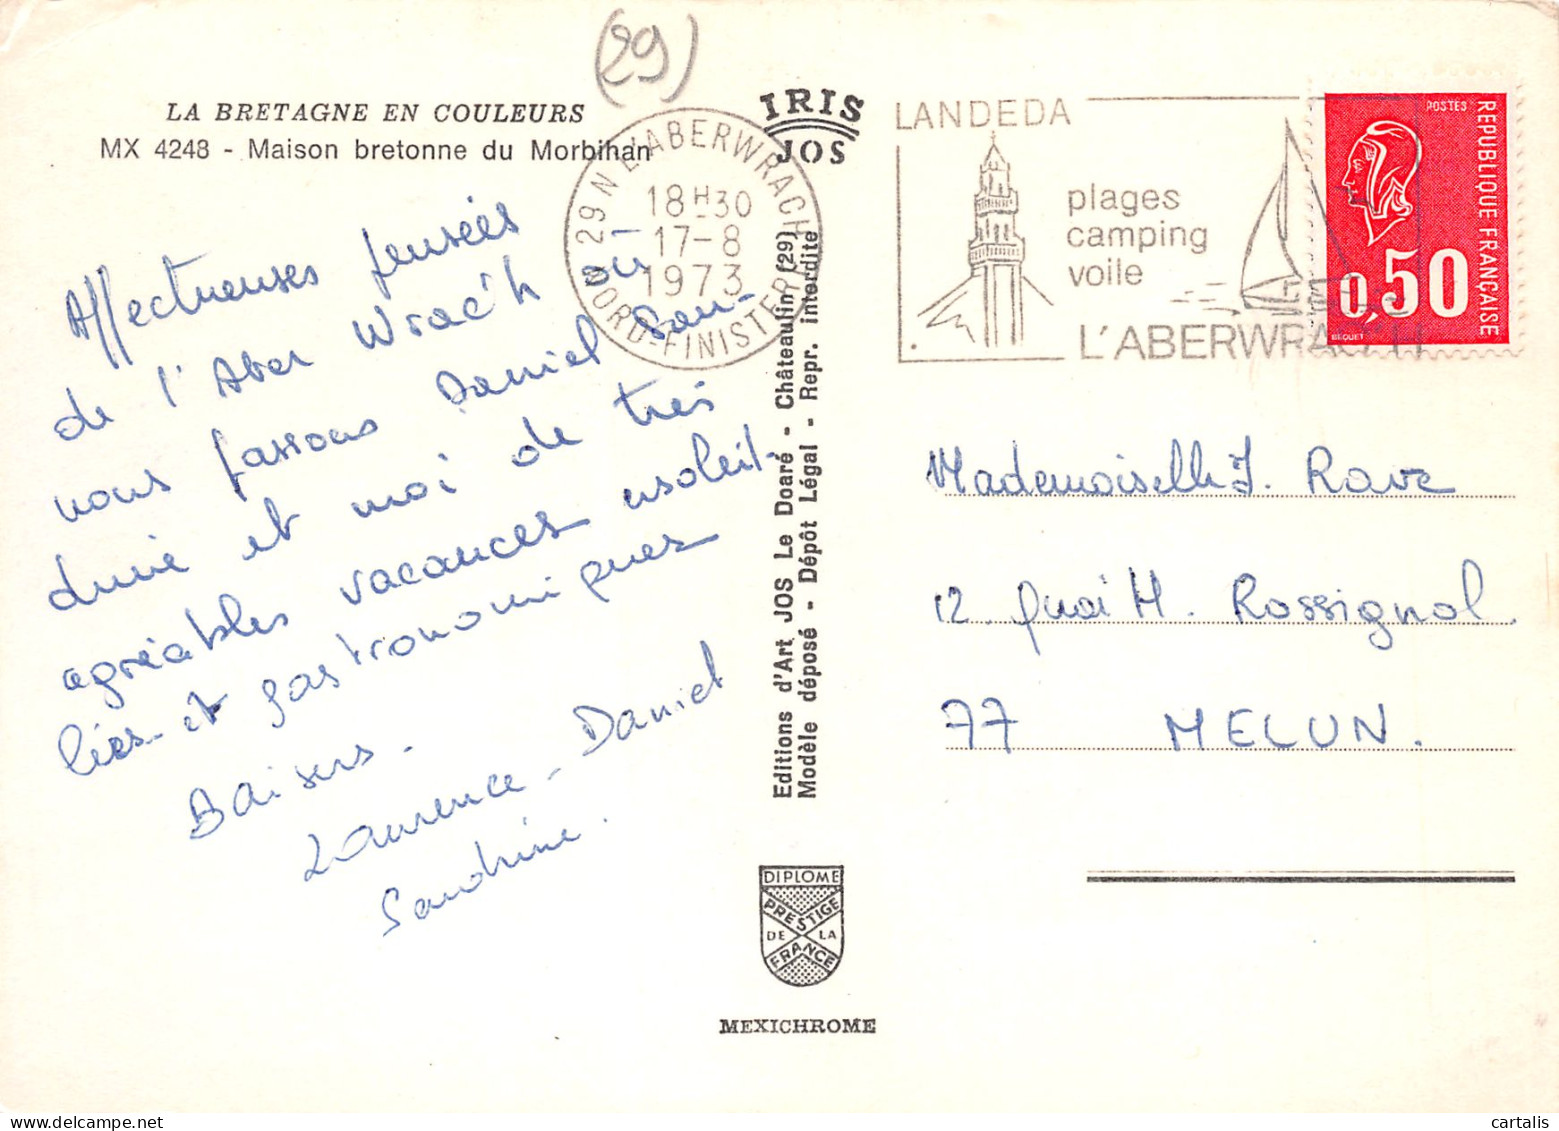 (29)
LA BRETAGNE EN COULEURS
MX 4248 - Maison bretonne du Morbihan
IRIS
JOS
29 N L'ABERWRACH
18H30
17-8
1973
NORD-FINISTERE
LANDEDA
plages
camping
voile
L'ABERWRACH
POSTES
REPUBLIQUE FRANÇAISE
0,50
BEQUET
Affectueuses pensées
de l'Aber Wrac'h où
nous passons Daniel San-
drine et moi de très
agréables vacances ensoleil-
lées et gastronomiques
Baisers.
Laurence - Daniel
Sandrine.
Editions d'Art JOS Le Doaré - Châteaulin (29)
Modèle déposé - Dépôt Légal - Repr. interdite
Mademoiselle J. Rave
12. Quai H. Rossignol.
77 MELUN.
DIPLOME
PRESTIGE
DE LA
FRANCE
MEXICHROME
cartalis